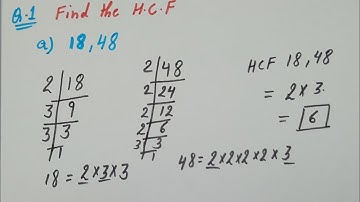 Q.1 Find the H.C.F
a) 18, 48
2 | 18
3 | 9
3 | 3
1
18 = 2 x 3 x 3
2 | 48
2 | 24
2 | 12
2 | 6
3 | 3
1
48 = 2 x 2 x 2 x 2 x 3
HCF 18, 48
= 2 x 3.
= 6